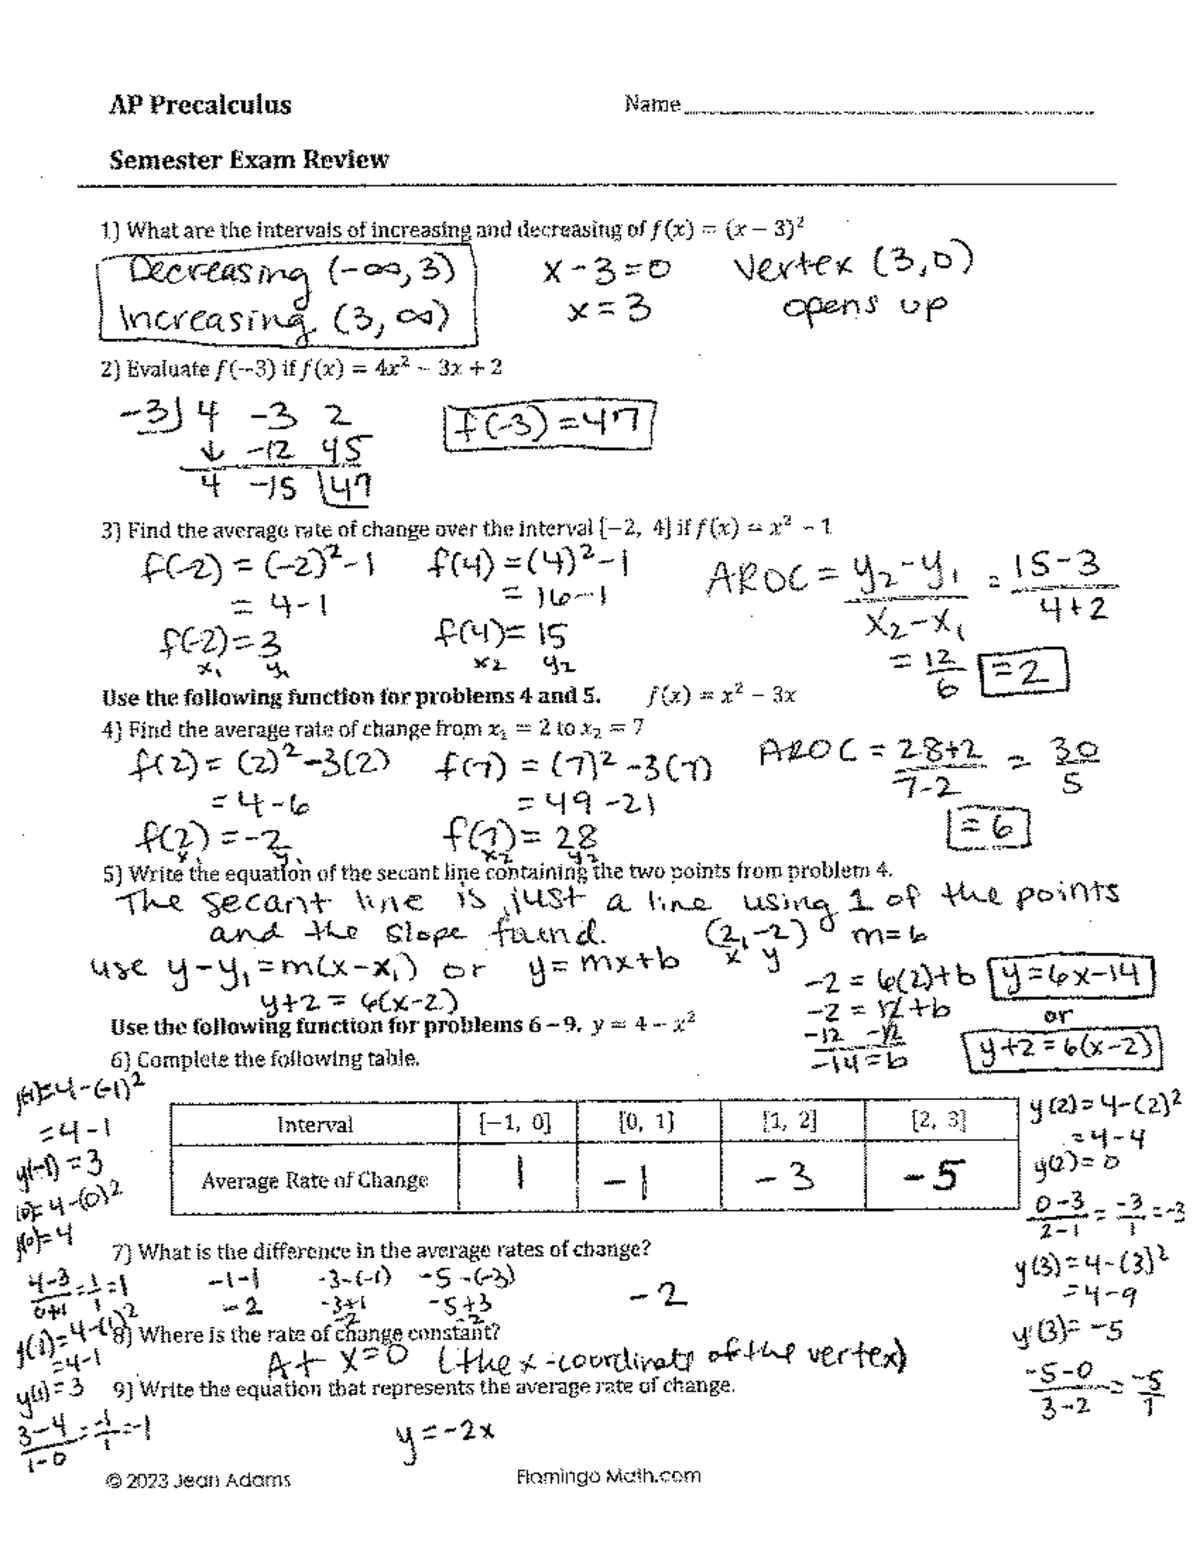 AP Precalculus
Name
Semester Exam Review
1) What are the intervals of increasing and decreasing of f(x) = (x – 3)²
Decreasing (-∞, 3)
Increasing (3, ∞)
x - 3 = 0
x = 3
Vertex (3, 0)
opens up
2) Evaluate f(–3) if f(x) = 4x² – 3x + 2
-3⌋ 4 -3 2
↓ -12 45
4 -15 47
f(-3) = 47
3) Find the average rate of change over the interval [–2, 4] if f(x) = x² – 1
f(-2) = (-2)² - 1
= 4 - 1
f(-2) = 3
x₁ y₁
f(4) = (4)² - 1
= 16 - 1
f(4) = 15
x2 y2
AROC = y₂ - y₁ / x₂ - x₁ = 15 - 3 / 4 + 2
= 12 / 6 = 2
Use the following function for problems 4 and 5. f(x) = x² – 3x
4) Find the average rate of change from x₁ = 2 to x₂ = 7
f(2) = (2)² - 3(2)
= 4 - 6
f(2) = -2
x₁ y₁
f(7) = (7)² - 3(7)
= 49 - 21
f(7) = 28
x2 y2
AROC = 28+2 / 7-2 = 30 / 5
= 6
5) Write the equation of the secant line containing the two points from problem 4.
The secant line is just a line using 1 of the points
and the slope found. (2, -2) m = 6
x y
use y - y₁ = m(x - x₁) or y = mx + b
y + 2 = 6(x - 2)
-2 = 6(2) + b
-2 = 12 + b
-12 -12
-14 = b
y = 6x - 14
or
y + 2 = 6(x - 2)
Use the following function for problems 6 – 9. y = 4 – x²
6) Complete the following table.
Interval [–1, 0] [0, 1] [1, 2] [2, 3]
Average Rate of Change 1 -1 -3 -5
= 4 - (-1)²
= 4 - 1
y(-1) = 3
= 4 - (0)²
= 4
4-3 / 0+1 = 1 / 1 = 1
y(1) = 4 - (1)²
= 4 - 1
y(1) = 3
3-4 / 1-0 = -1 / 1 = -1
y(2) = 4 - (2)²
= 4 - 4
y(2) = 0
0-3 / 2-1 = -3 / 1 = -3
y(3) = 4 - (3)²
= 4 - 9
y(3) = -5
-5-0 / 3-2 = -5 / 1
7) What is the difference in the average rates of change?
-1-1 -3-(-1) -5-(-3)
-2 -3+1 -5+3
-2 -2
-2
8) Where is the rate of change constant?
At x=0 (the x-coordinate of the vertex)
9) Write the equation that represents the average rate of change.
y = -2x
© 2023 Jean Adams
Flamingo Math.com